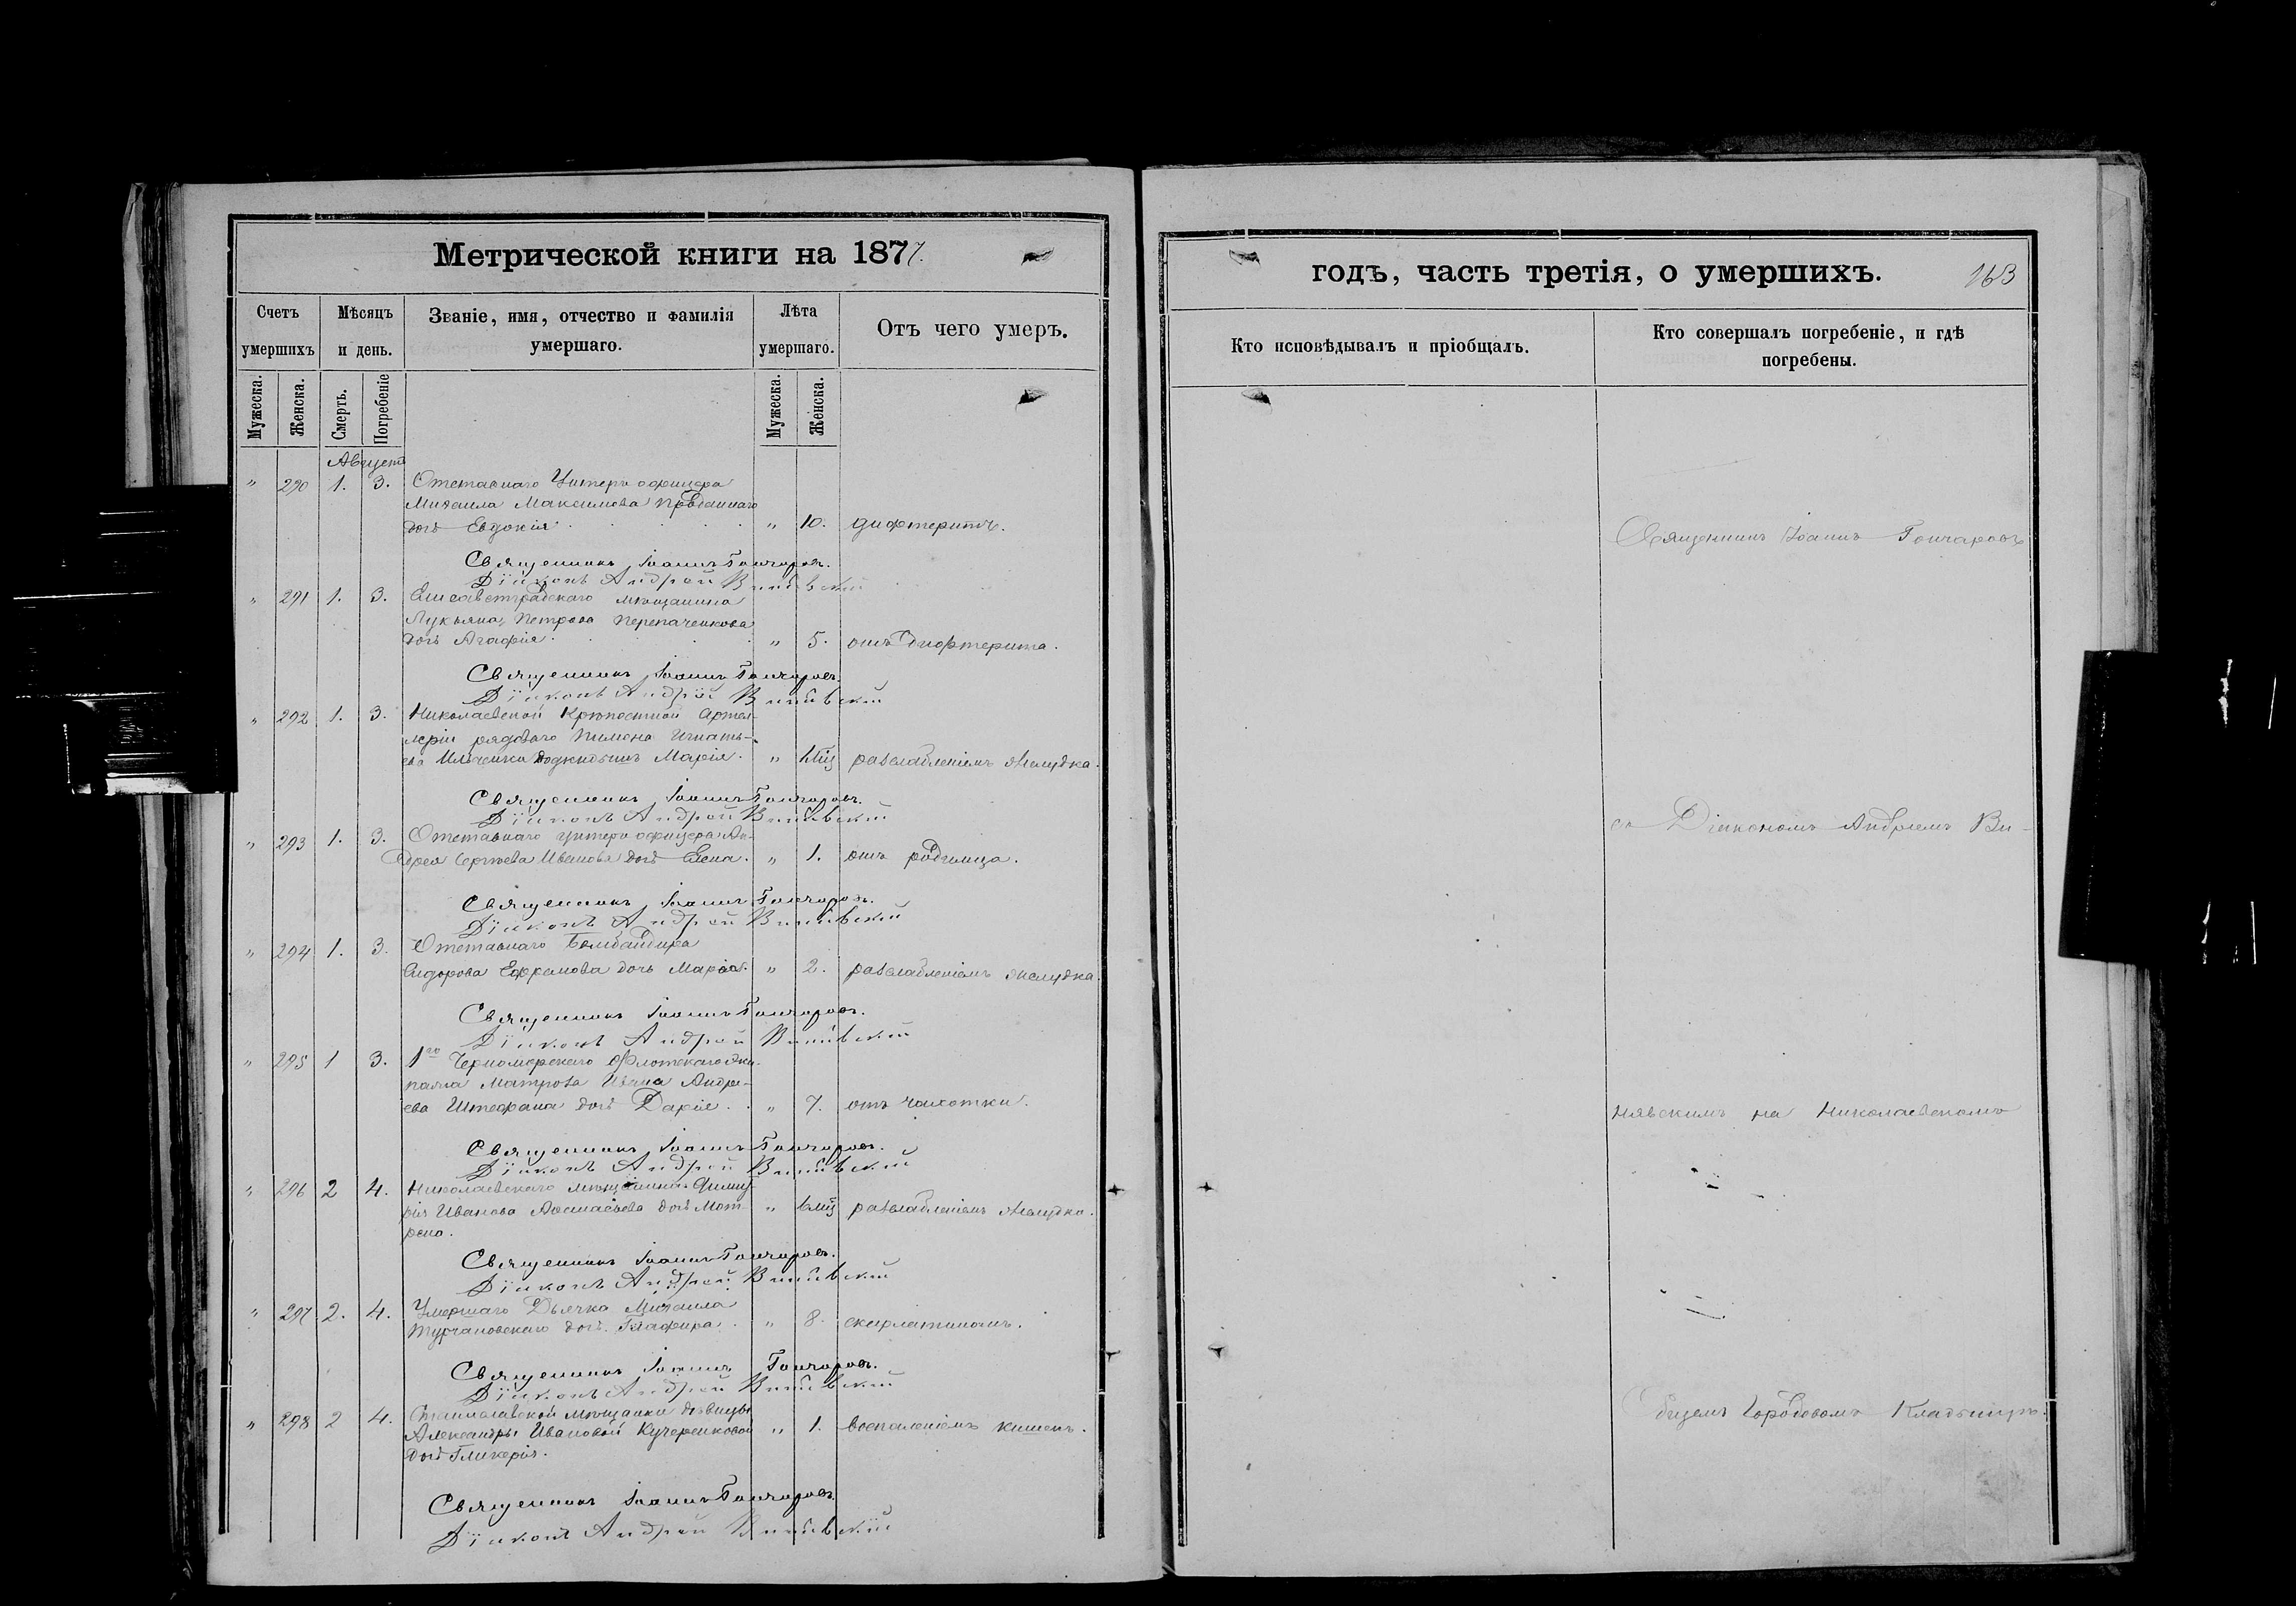 Метрической книги на 1877.
Счетъ умершихъ
Мѣсяцъ и день.
Званіе, имя, отчество и фамилія умершаго.
Лѣта умершаго.
Отъ чего умеръ.
Мужеска.
Женска.
Смерть.
Погребеніе
Мужеска.
Женска.
Августъ
" 290 1. 3. Отставнаго Унтеръ офицера
Михаила Максимова
дочь Евдокія " 10. дифтеритъ.
Священникъ Іоаннъ Гончаровъ.
Діаконъ Андрей
" 291 1. 3. Елисаветградскаго мѣщанина
Лукьяна Петрова Перепаченкова
дочь Агафія " 5. отъ дифтерита.
Священникъ Іоаннъ Гончаровъ.
Діаконъ Андрей
" 292 1. 3. Николаевской крѣпостной артил-
леріи рядоваго Пимена Игнать-
ева подкидышъ Марія. " разслабленіемъ желудка.
Священникъ Іоаннъ Гончаровъ.
Діаконъ Андрей
" 293 1. 3. Отставнаго унтеръ офицера Ан-
дрея Сергѣева Иванова дочь Елена. " 1. отъ родимца.
Священникъ Іоаннъ Гончаровъ.
Діаконъ Андрей
" 294 1. 3. Отставнаго Бомбандира
Сидорова Ефремова дочь Марія. " 2. разслабленіемъ желудка.
Священникъ Іоаннъ Гончаровъ.
Діаконъ Андрей
" 295 1 3. 1го Черноморскаго Флотскаго эки-
пажа Матроса Ивана Андре-
ева Штефана дочь Дарія. " 7. отъ чахотки.
Священникъ Іоаннъ Гончаровъ.
Діаконъ Андрей
" 296 2 4. Николаевскаго мѣщанина Дими-
рія Иванова дочь Мот-
рона. " 6 мц разслабленіемъ желудка.
Священникъ Іоаннъ Гончаровъ.
Діаконъ Андрей
" 297. 2. 4. Умершаго Дьячка Михаила
Турчановскаго дочь Глафира. " 8. скарлатиномъ.
Священникъ Іоаннъ Гончаровъ.
Діаконъ Андрей
" 298 2 4. мѣщанки дѣвицы
Александры Ивановой Кучеренковой " 1. воспаленіемъ кишекъ.
дочь Гликерія.
Священникъ Іоаннъ Гончаровъ
Діаконъ Андрей
годъ, часть третія, о умершихъ. 163
Кто исповѣдывалъ и пріобщалъ.
Кто совершалъ погребеніе, и гдѣ погребены.
Священникъ Іоаннъ Гончаровъ
съ Діакономъ Андреемъ Ви-
нявскимъ на Николаевскомъ
Общемъ Городовомъ Кладбищѣ.